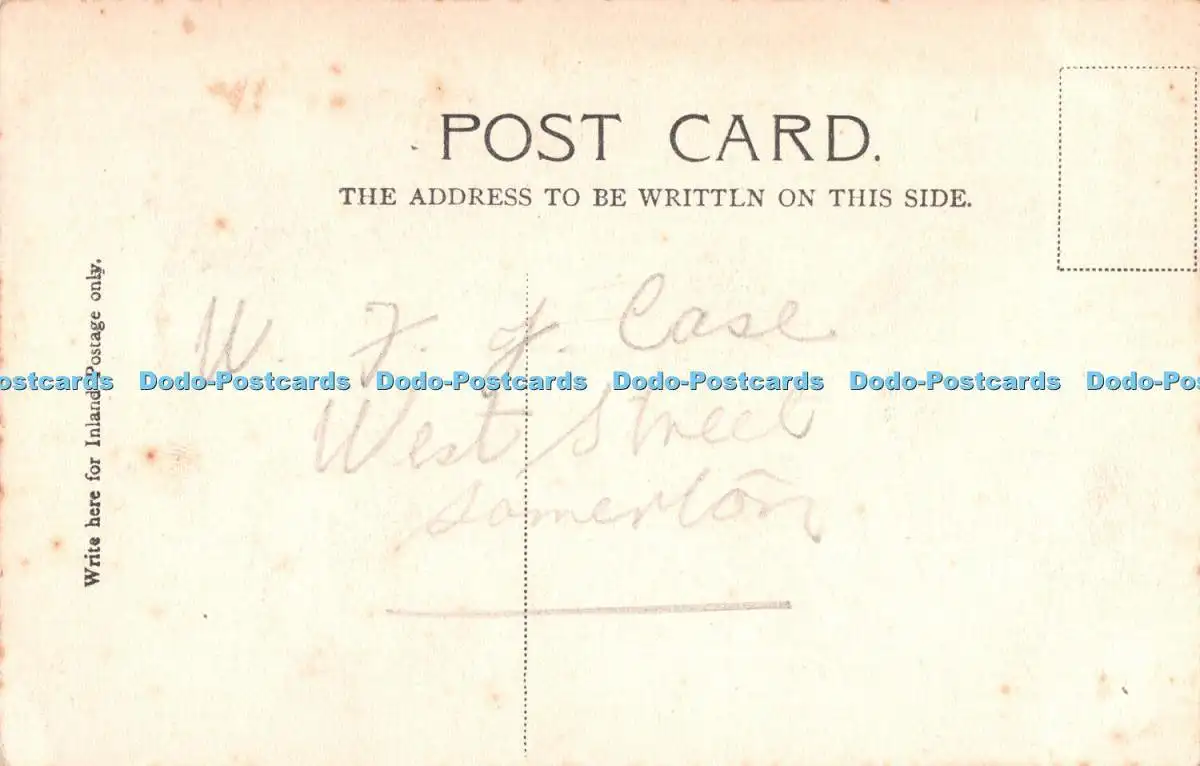 POST CARD.
THE ADDRESS TO BE WRITTLN ON THIS SIDE.
Write here for Inland Postage only.
W. F. J. Case
ostcards Dodo-Postcards Dodo-Postcards Dodo-Postcards Dodo-Postcards Dodo-Po
West Street
Somerton